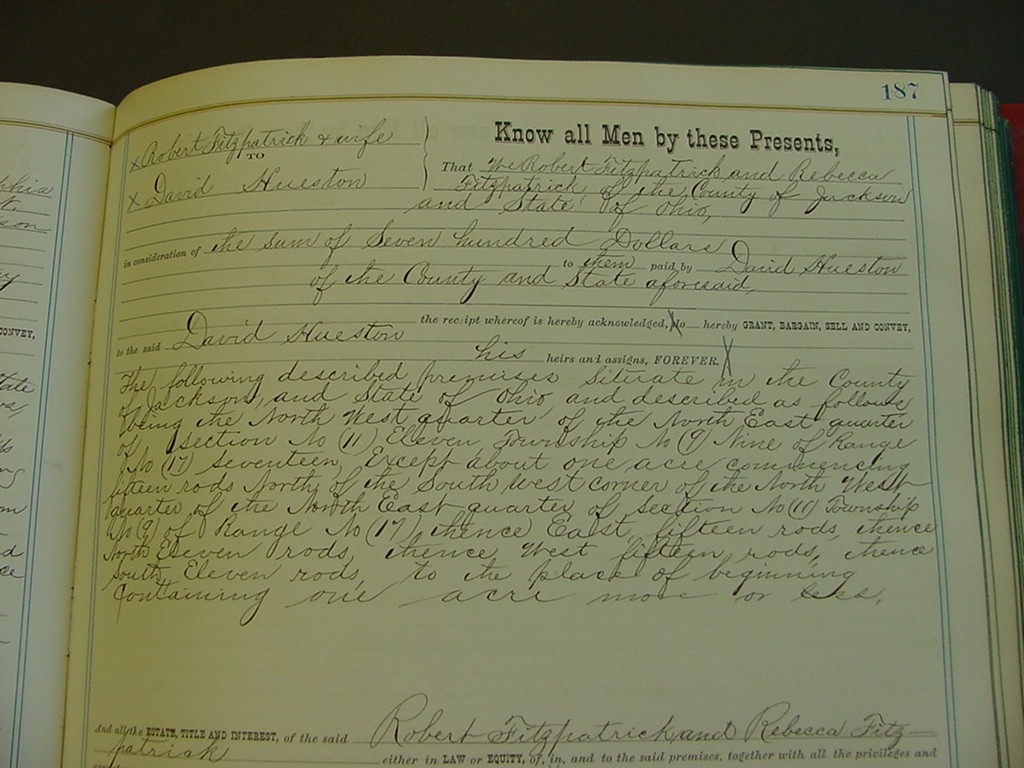 187
Robert Fitzpatrick & wife
TO
David Hueston
Know all Men by these Presents,
That We Robert Fitzpatrick and Rebecca
Fitzpatrick, of the County of Jackson
and State of Ohio,
in consideration of the sum of Seven hundred Dollars
to them paid by David Hueston
of the County and State aforesaid,
the receipt whereof is hereby acknowledged, do hereby GRANT, BARGAIN, SELL AND CONVEY,
to the said David Hueston
his heirs and assigns, FOREVER.
The following described premises Situate in the County
of Jackson, and State of Ohio and described as follows
being the North West quarter of the North East quarter
of section No (11) Eleven Township No (9) Nine of Range
No (17) seventeen, Except about one acre commencing
fifteen rods North of the South west corner of the North West
quarter of the North East quarter of Section No (11) Township
No (9) of Range No (17) thence East fifteen rods, thence
North Eleven rods, thence West fifteen rods, thence
south Eleven rods, to the place of beginning
Containing one acre more or less.
And all the ESTATE, TITLE AND INTEREST, of the said Robert Fitzpatrick and Rebecca Fitz-
patrick either in LAW or EQUITY, of, in, and to the said premises, together with all the privileges and
CONVEY,